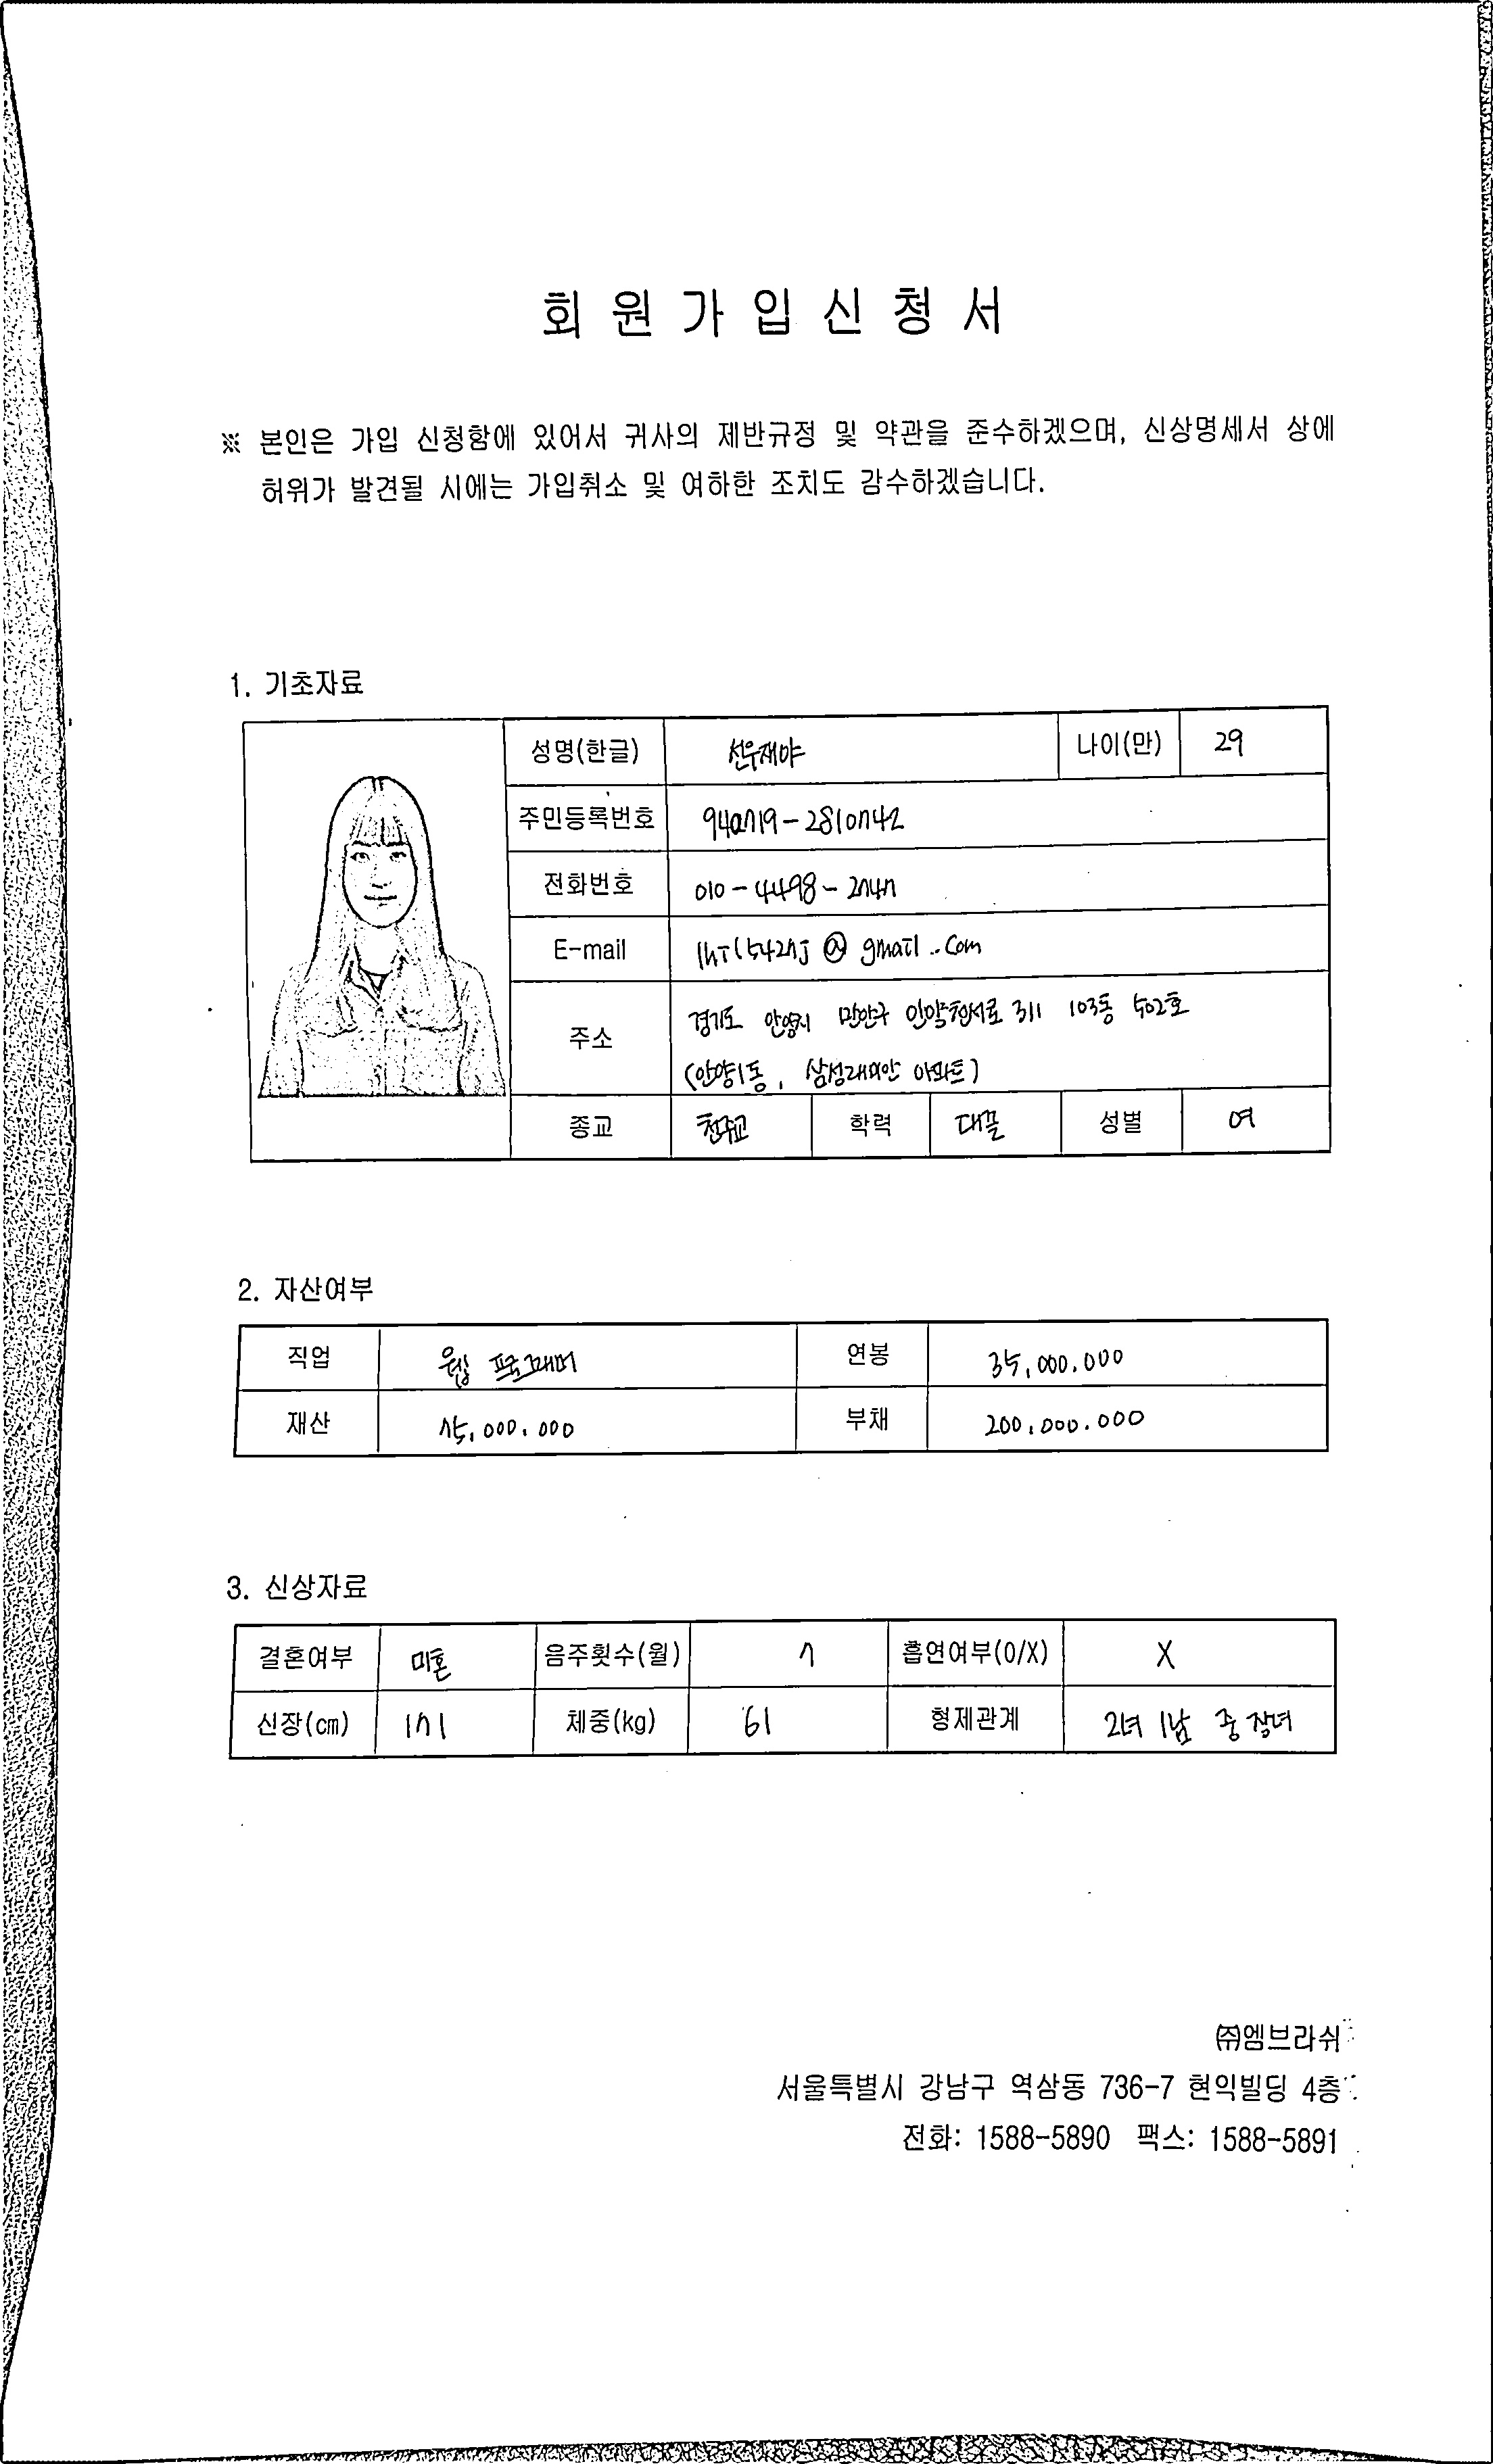 회 원 가 입 신 청 서
※ 본인은 가입 신청함에 있어서 귀사의 제반규정 및 약관을 준수하겠으며, 신상명세서 상에
허위가 발견될 시에는 가입취소 및 여하한 조치도 감수하겠습니다.
1. 기초자료
성명(한글) 선우재야 나이(만) 29
주민등록번호 940719-2810742
전화번호 010-4498-2747
E-mail @ gmail.com
주소 경기도 안양시 만안구 311 103동 502호
(안양1동, 삼성래미안 아파트)
종교 천주교 학력 대졸 성별 여
2. 자산여부
직업 웹 프로그래머 연봉 35,000,000
재산 75,000,000 부채 200,000,000
3. 신상자료
결혼여부 미혼 음주횟수(월) 7 흡연여부(O/X) X
신장(cm) 171 체중(kg) 61 형제관계 2녀 1남 중 장녀
㈜엠브라쉬
서울특별시 강남구 역삼동 736-7 현익빌딩 4층
전화: 1588-5890 팩스: 1588-5891